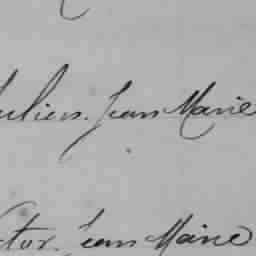 Julien Jean Marie
ctor Jean Marie